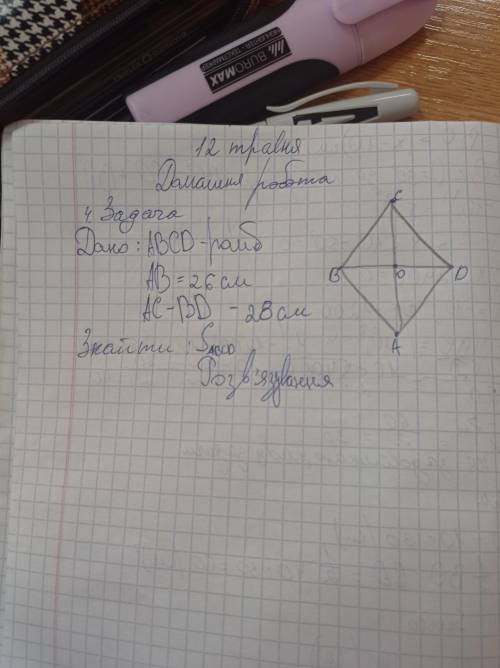 BUROMAX
12 травня
Домашня робота
4 Задача
Дано: ABCD - ромб
AB = 26 см
AC - BD - 28 см
Знайти: SABCD
Розв'язування
C
B
O
D
A